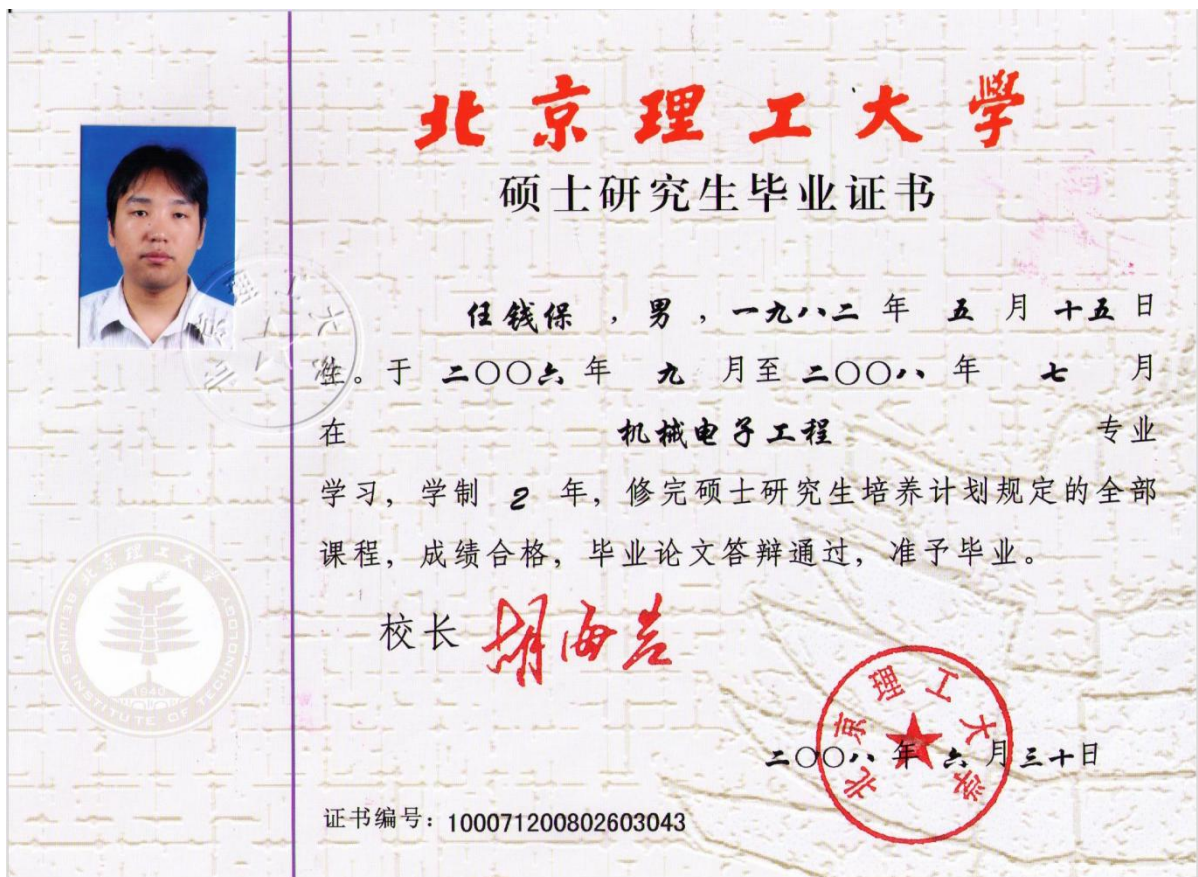 北京理工大學
硕士研究生毕业证书
任钱保，男，一九八二 年 五 月 十五 日
生。于 二〇〇六 年 九 月至 二〇〇八 年 七 月
在 机械电子工程 专业
学习，学制 2 年，修完硕士研究生培养计划规定的全部
课程，成绩合格，毕业论文答辩通过，准予毕业。
校长 胡海岩
北京理工大学
二〇〇八 年 六 月 三十 日
证书编号：100071200802603043
北京理工大学
BEIJING INSTITUTE OF TECHNOLOGY
1940